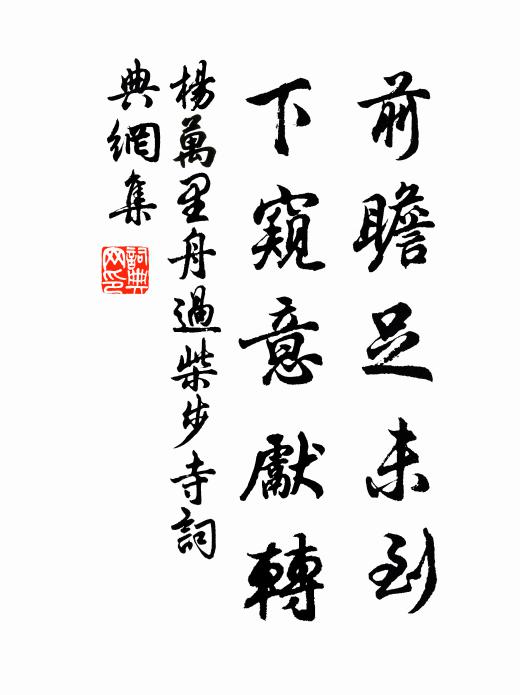 前瞻足未到
下窺意獻轉
楊萬里舟過柴步寺詞
典網集
詞典
网印